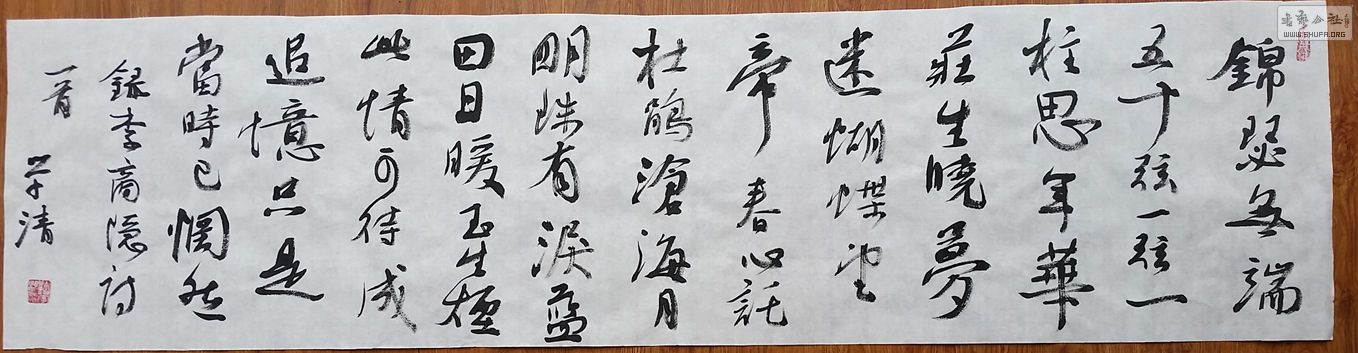 錦瑟無端
五十弦一弦一
柱思年華
莊生曉夢
迷蝴蝶望
帝春心託
杜鵑滄海月
明珠有淚藍
田日暖玉生煙
此情可待成
追憶只是
當時已惘然
錄李商隱詩
一首
清
書藝公社
WWW.SHUFA.ORG